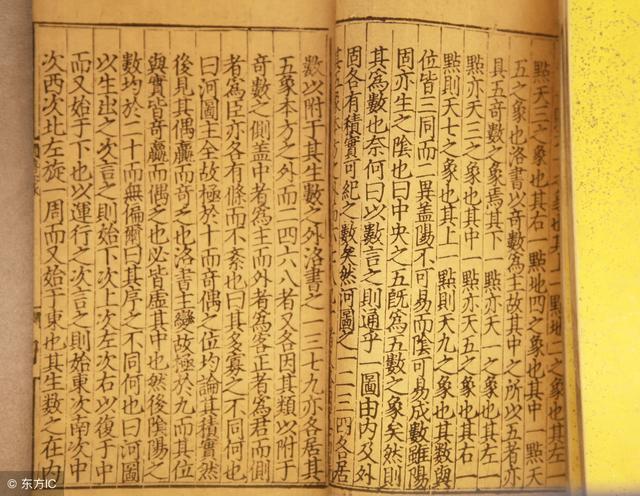 之象也其上一點地二之象也其左
點天三之象也其右一點地四之象也其中一點天
五之象也洛書以奇數為主故其中之所以五者亦
具五奇數之象焉其下一點亦天一之象也其左
一點亦天三之象也其中一點亦天五之象也其右一
點則天七之象也其上一點則天九之象也其數與
位皆三同而二異蓋陽不可易而陰可易成數雖陽
固亦生之陰也曰中央之五既為五數之象矣然則
其為數也奈何曰以數言之則通乎一圖由內及外
固各有積實可紀之數矣然河圖之一二三四各居
其五象本方之外而六七八九
數以附于其生數之外洛書之一三七九亦各居其
五象本方之外而二四六八者又各因其類以附于
奇數之側蓋中者為主而外者為客正者為君而側
者為臣亦各有條而不紊也曰其多寡之不同何也
曰河圖主全故極於十而奇偶之位均論其積實然
後見其偶贏而奇乏也洛書主變故極於九而其位
與實皆奇贏而偶乏也必皆虛其中也然後陰陽之
數均於二十而無偏爾曰其序之不同何也曰河圖
以生出之次言之則始下次上次左次右以復于中
而又始于下也以運行之次言之則始東次南次中
次西次北左旋一周而又始于東也其生數之在內
©东方IC